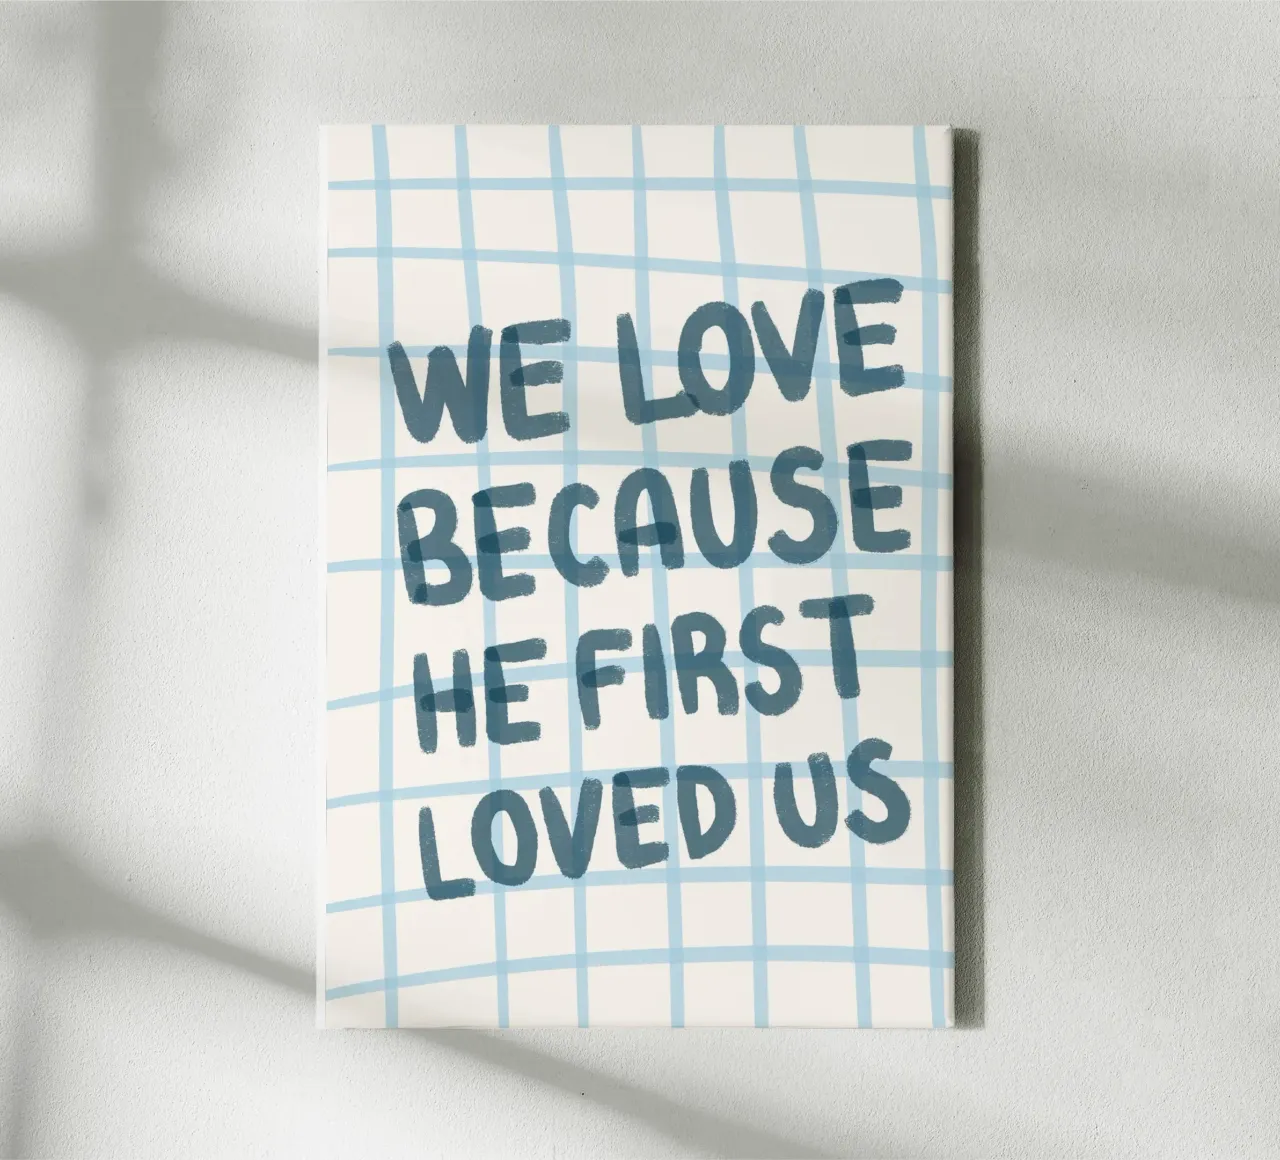 WE LOVE
BECAUSE
HE FIRST
LOVED US